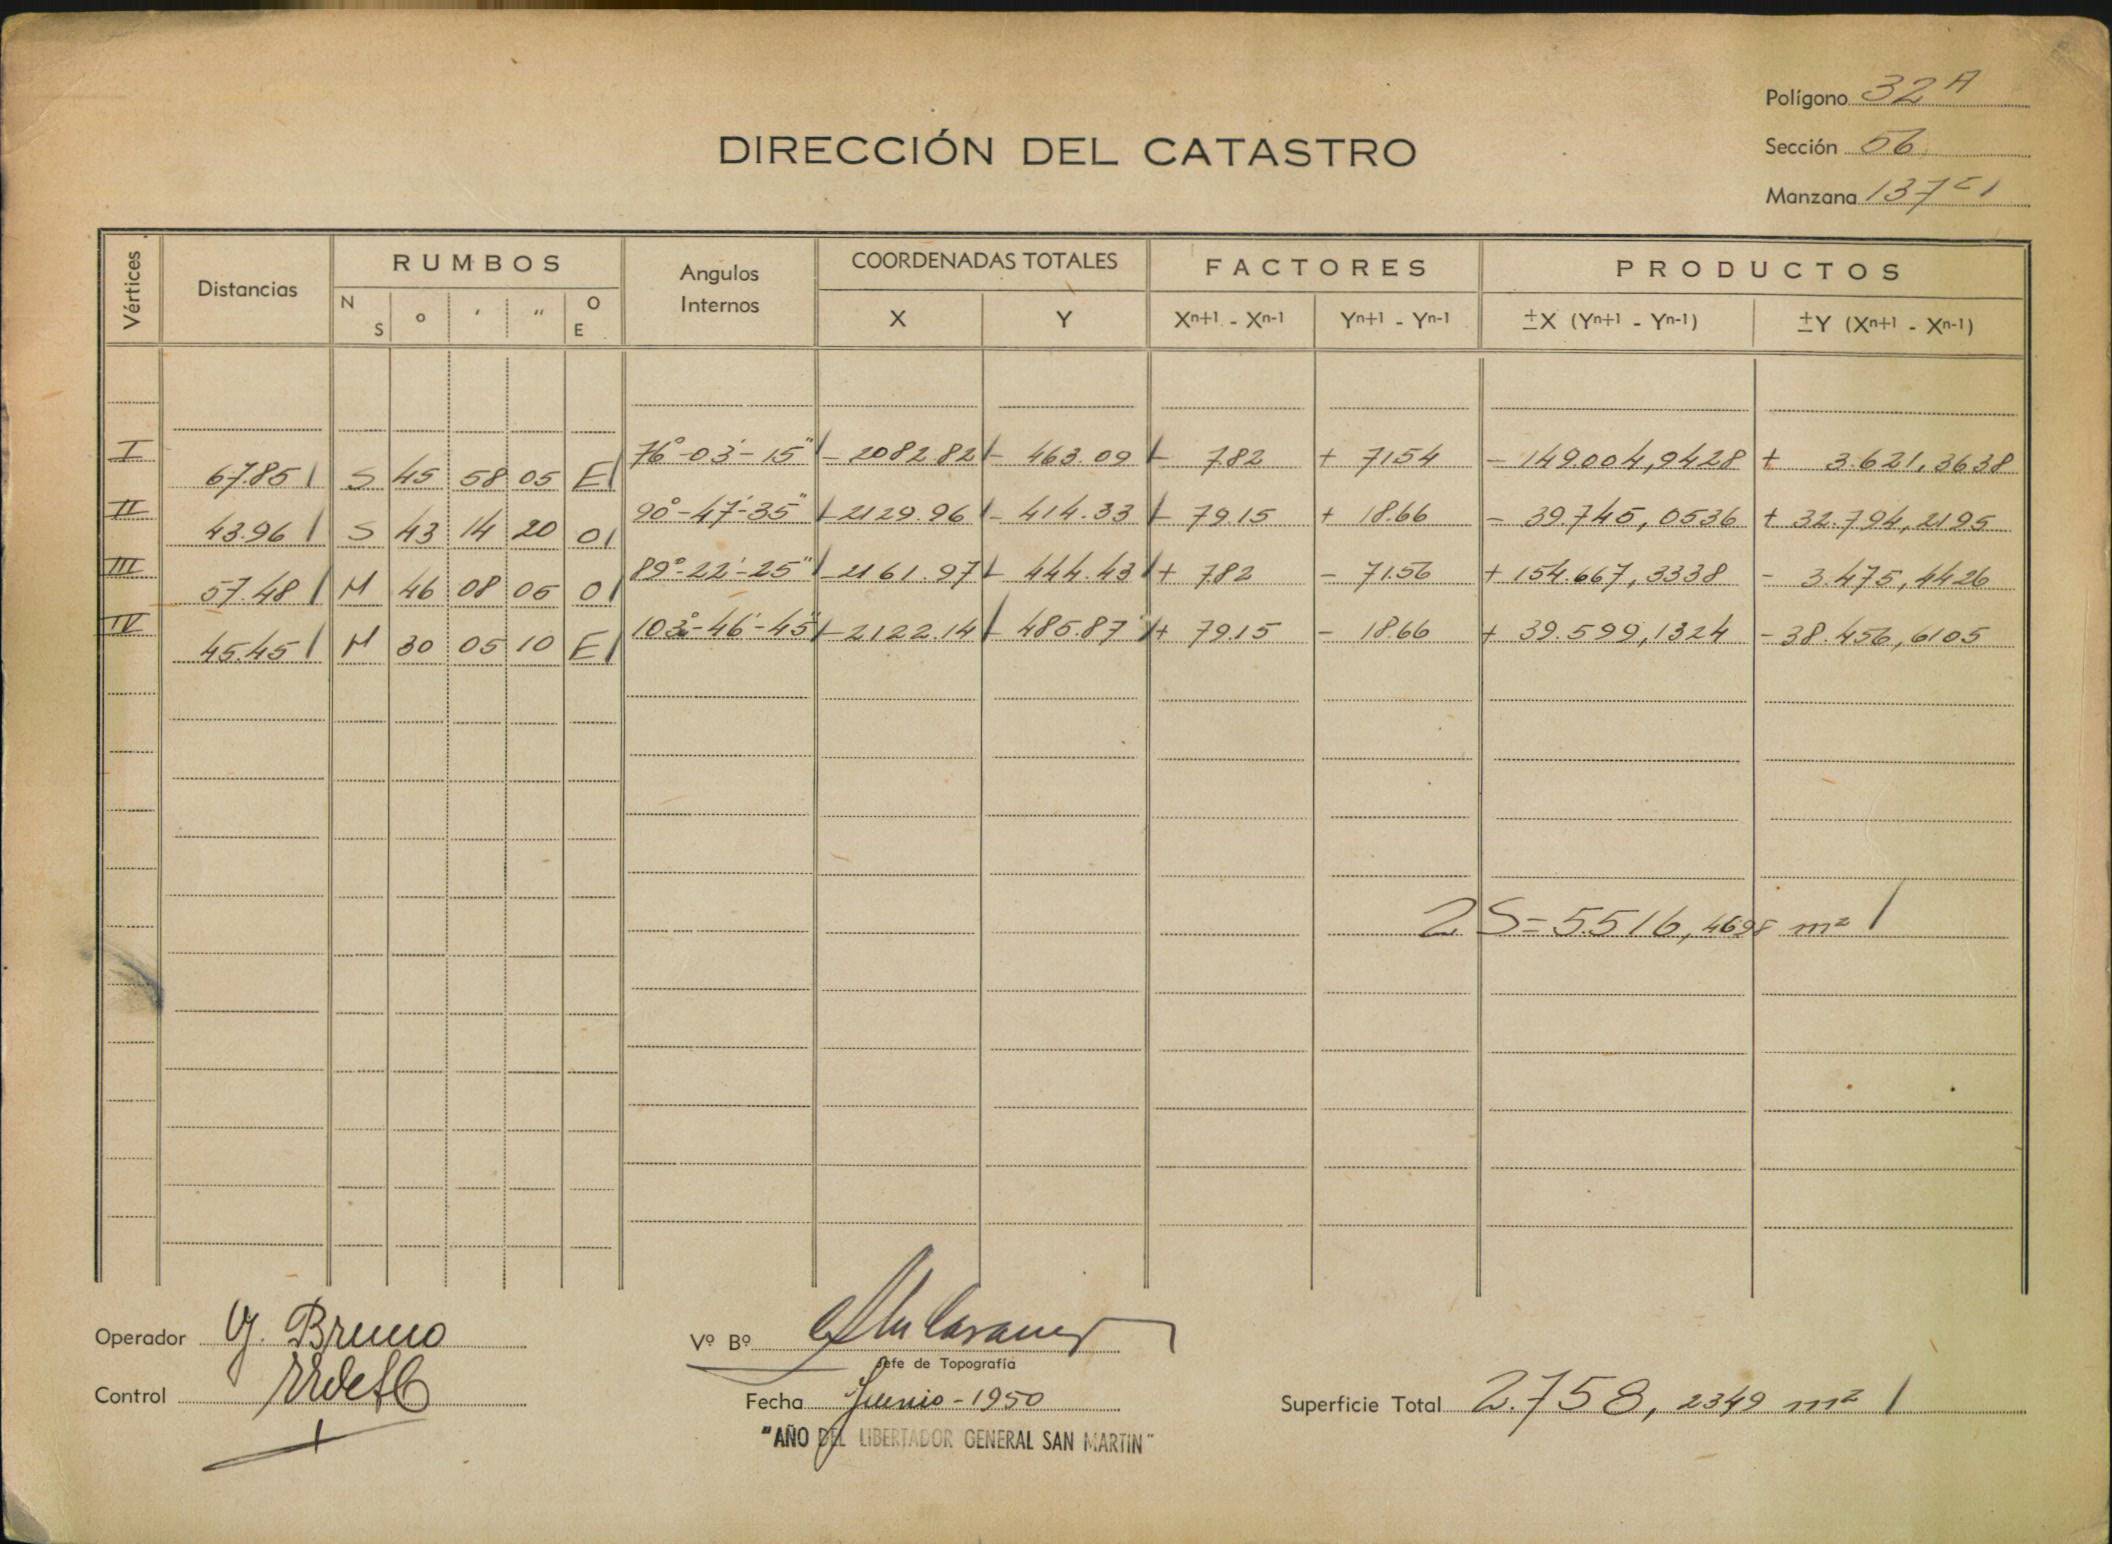 Polígono 32 A
DIRECCIÓN DEL CATASTRO
Sección 56
Manzana 137 c 1
Vértices Distancias RUMBOS Angulos Internos COORDENADAS TOTALES FACTORES PRODUCTOS
N S o ′ ″ O E X Y Xn+1 - Xn-1 Yn+1 - Yn-1 ±X (Yn+1 - Yn-1) ±Y (Xn+1 - Xn-1)
I 76°-03'-15" - 2082.82 - 463.09 - 7.82 + 71.54 - 149.004,9428 + 3.621,3638
67.85 S 45 58 05 E
II 90°-47'-35" - 2129.96 - 414.33 - 79.15 + 18.66 - 39.745,0536 + 32.794,2195
43.96 S 43 14 20 O
III 89°-22'-25" - 2161.97 - 444.43 + 7.82 - 71.56 + 154.667,3338 - 3.475,4426
57.48 N 46 08 05 O
IV 103°-46'-45" - 2122.14 - 485.87 + 79.15 - 18.66 + 39.599,1324 - 38.456,6105
45.45 N 30 05 10 E
2 S = 5.516,4698 m²
Operador J. Bruno
Vº Bº
Jefe de Topografía
Control
Fecha Junio - 1950
Superficie Total 2.758,2349 m²
"AÑO DEL LIBERTADOR GENERAL SAN MARTIN"